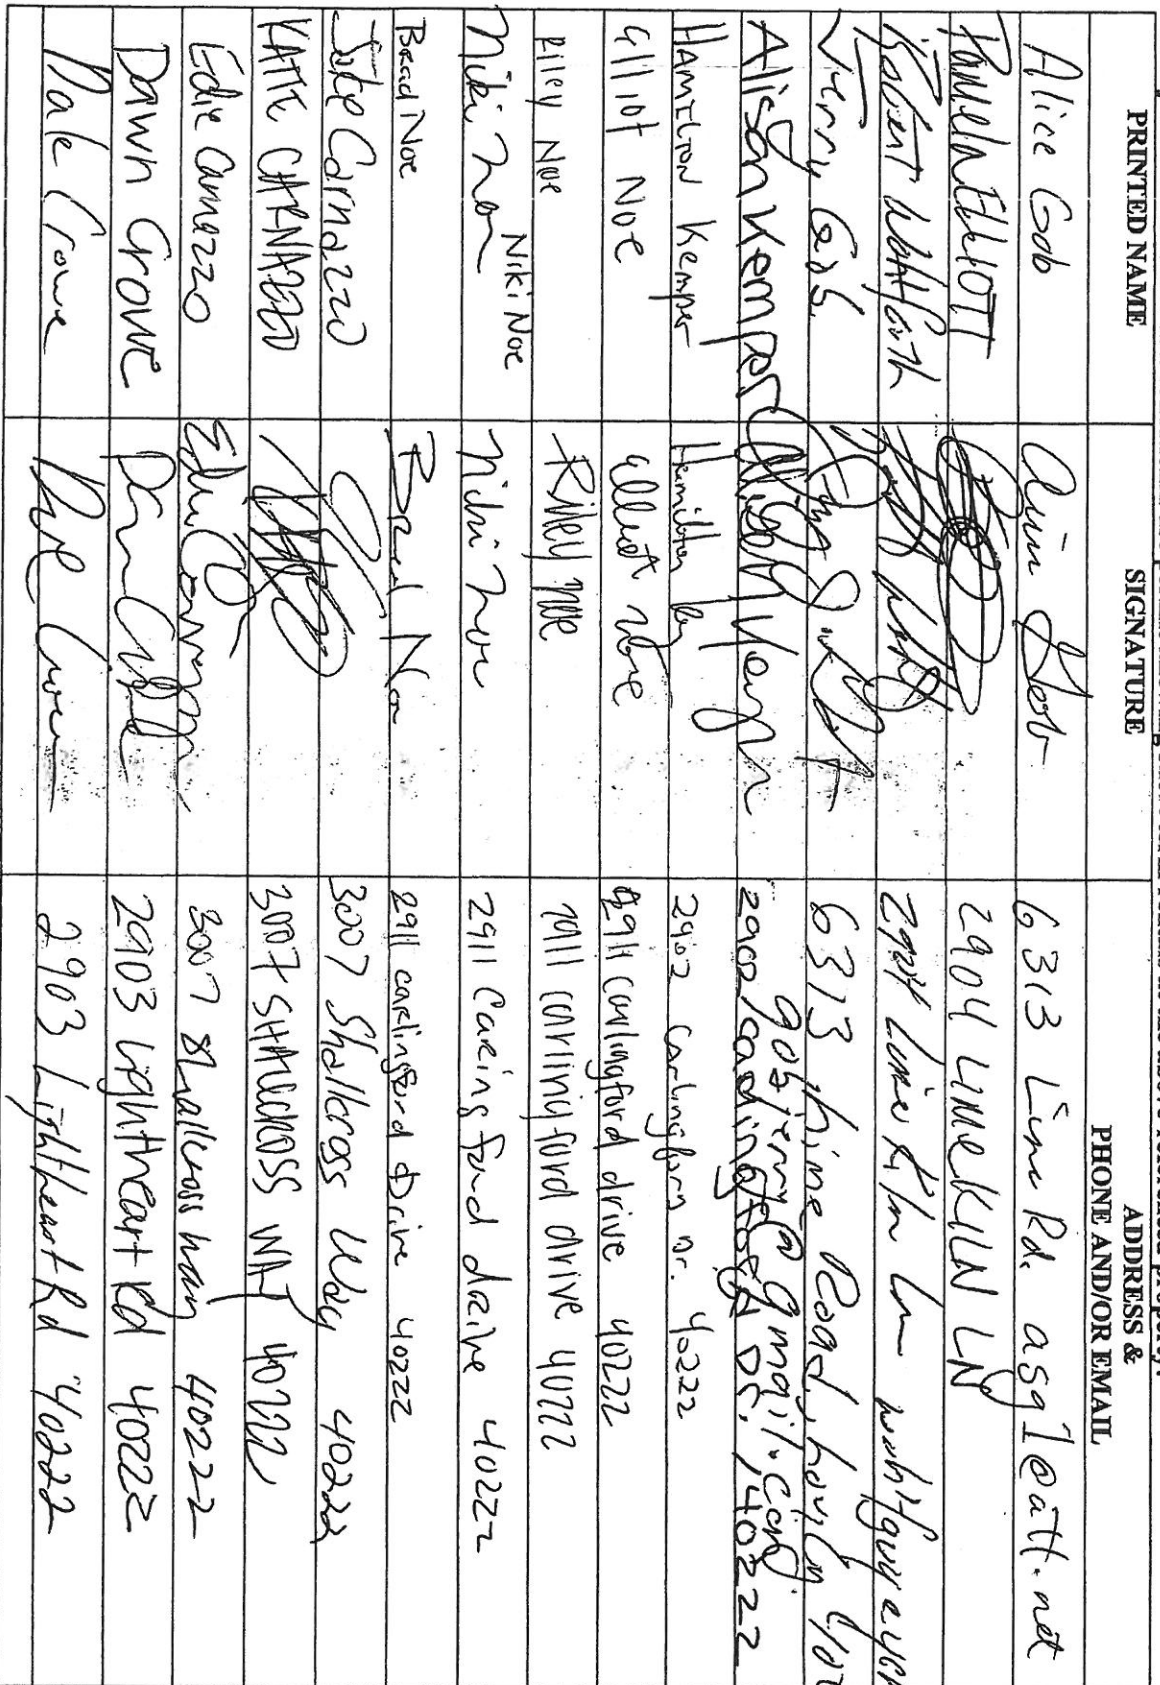 above referenced property.
PRINTED NAME SIGNATURE ADDRESS &
PHONE AND/OR EMAIL
Alice Gob 6313 Lime Rd. asg1@att.net
Pamela Elliott 2904 LIMEKILN LN
Robert
Jerry Gob 6313 Lime Road,
gobjerry@gmail.com
Alison Kemper 2902 Dr. 40222
HAMILTON Kemper Hamilton 2902 Carlingford Dr. 40222
Elliot Noe Elliot Noe 2911 carlingford drive 40222
Riley Noe Riley Noe 2911 carlingford drive 40222
Niki Noe Niki Noe Niki Noe 2911 Caringford drive 40222
Brad Noe Brad Noe 2911 carlingford Drive 40222
Carnazzo 3007 Shallcross Way 40222
KATIE CARNAZZO 3007 SHALLCROSS WAY 40222
Edie Carnazzo Edie 3007 Shallcross way 40222
Dawn Crowe Dawn 2903 Lightheart Rd 40222
Dale Crowe Dale Crowe 2903 Lightheart Rd 40222